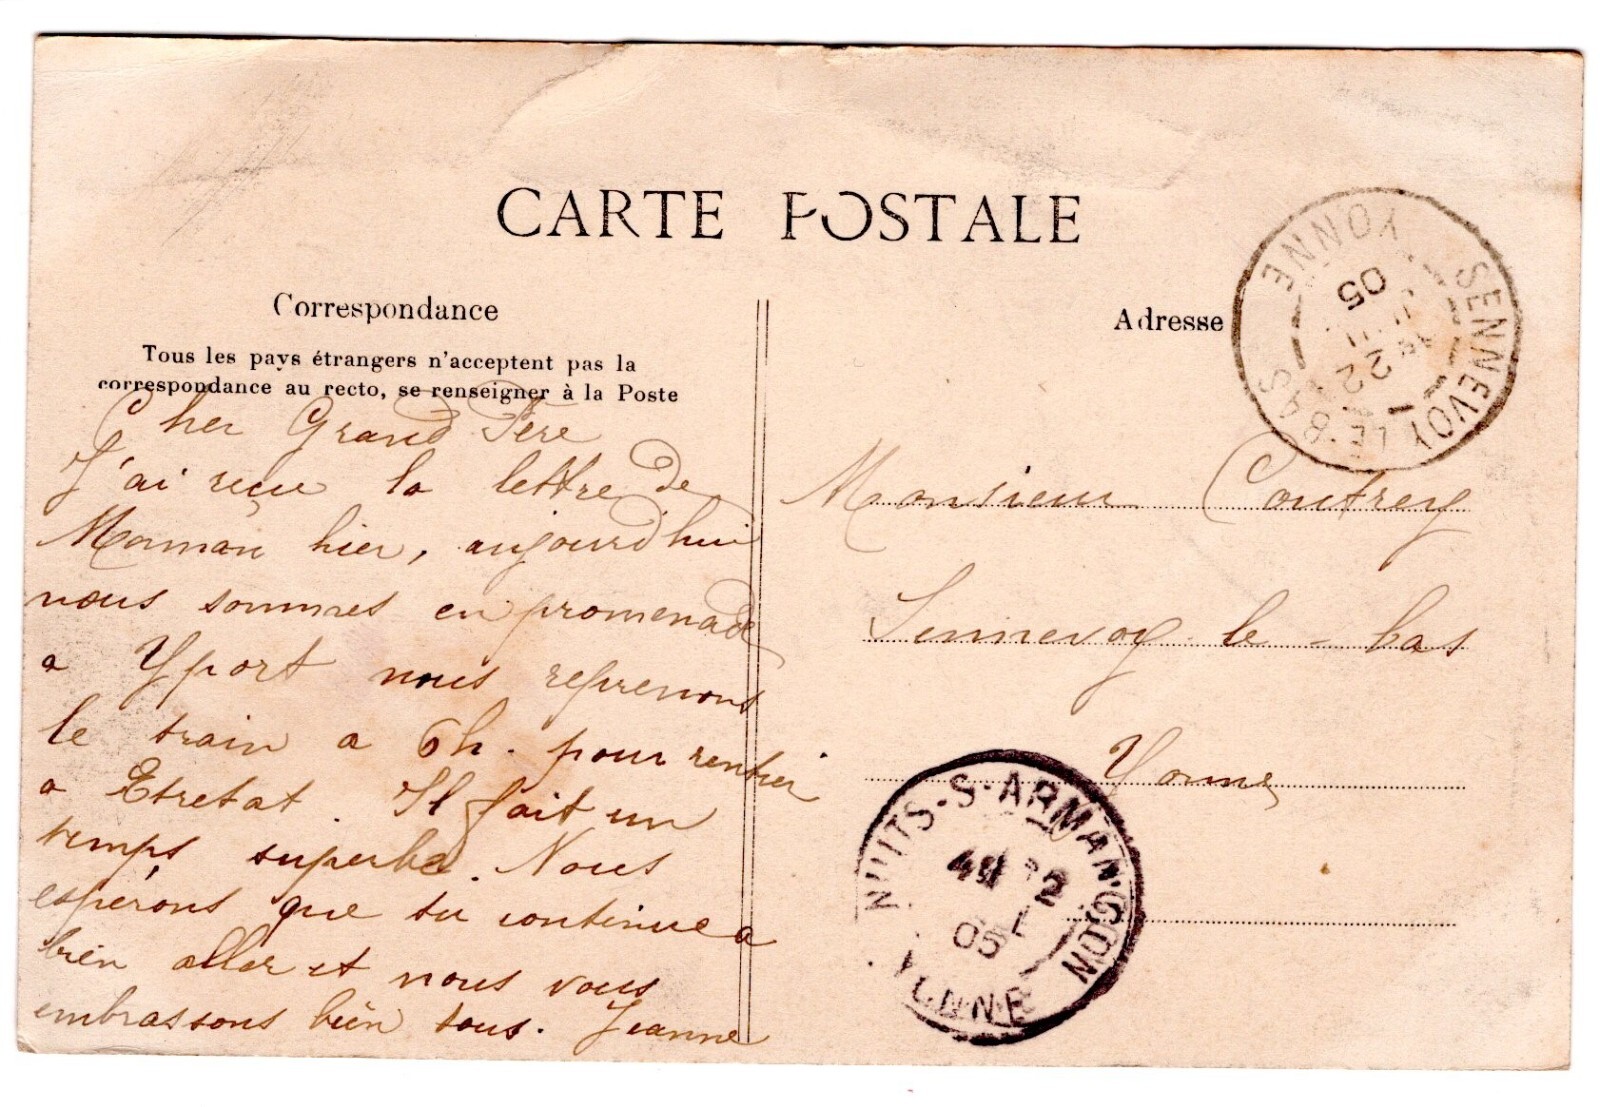 CARTE POSTALE
Correspondance
Tous les pays étrangers n'acceptent pas la
correspondance au recto, se renseigner à la Poste
Cher Grand Père
J'ai reçu la lettre de
Maman hier, aujourd'hui
nous sommes en promenade
a Yport nous reprenons
le train a 6h. pour rentrer
a Etretat. Il fait un
temps superbe. Nous
espérons que tu continue a
bien aller et nous vous
embrassons bien tous. Jeanne
Adresse
Monsieur Coutrey
Sennevoy le-bas
Yonne
SENNEVOY-LE-BAS
YONNE
22
05
NUITS-S-ARMANÇON
YONNE
05